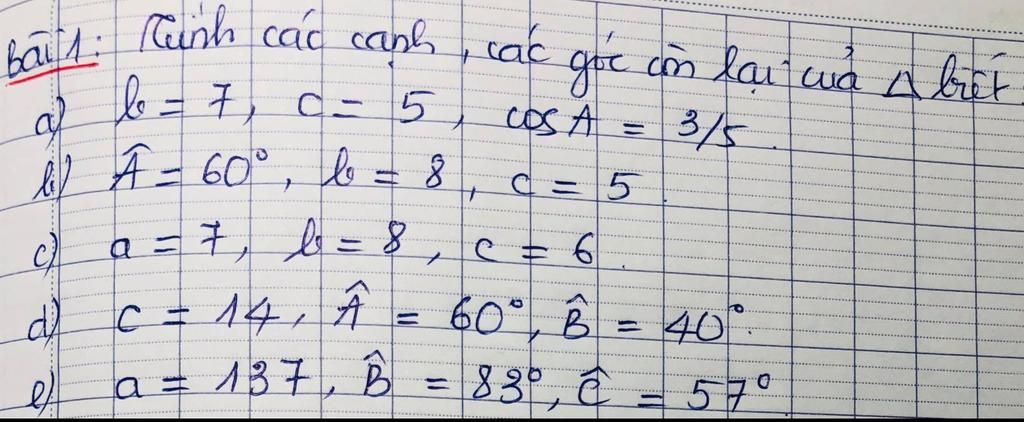 Bài 1: Tính các cạnh, các góc còn lại của Δ biết
a) b = 7, c = 5, cos A = 3/5.
b) Â = 60°, b = 8, c = 5
c) a = 7, b = 8, c = 6.
d) c = 14, Â = 60°, B̂ = 40°.
e) a = 137, B̂ = 83°, Ĉ = 57°